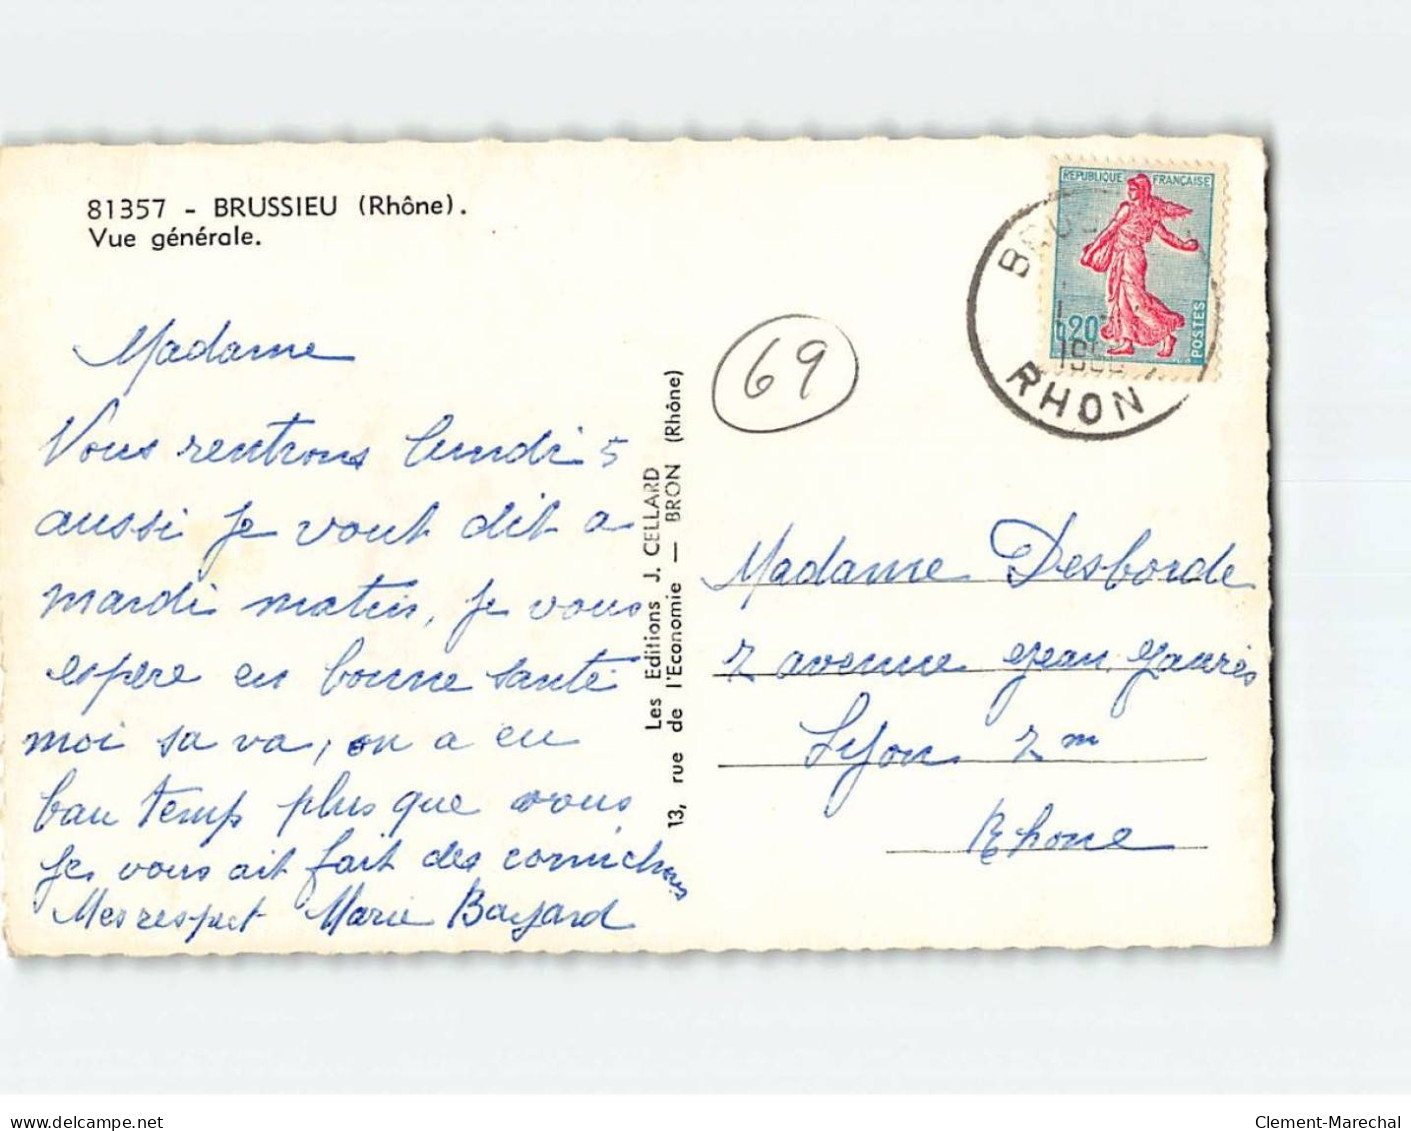 81357 - BRUSSIEU (Rhône).
Vue générale.
Madame
Vous rentrons lundi 5
aussi je vout dit a
mardi matin, je vous
espère en bonne santé
moi sa va, on a eu
bau temp plus que vous
Je vous ait fait des cornichons
Mes respect Marie Bayard
Les Editions J. CELLARD
13, rue de l'Economie — BRON (Rhône)
69
REPUBLIQUE FRANÇAISE
0,20
POSTES
RHON
Madame Desborde
7 avenue Jean Jaurès
Lyon 7 m
Rhone
delcampe.net
Clement-Marechal